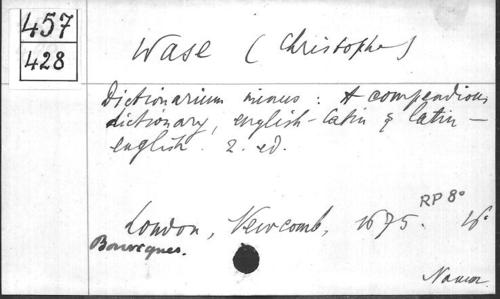 457
428
Wase (Christophe)
Dictionarium minus : A compendious
dictionary, english-latin & latin-
english. 2. ed.
RP 8°
London, Newcomb, 1675. 16°
Namur